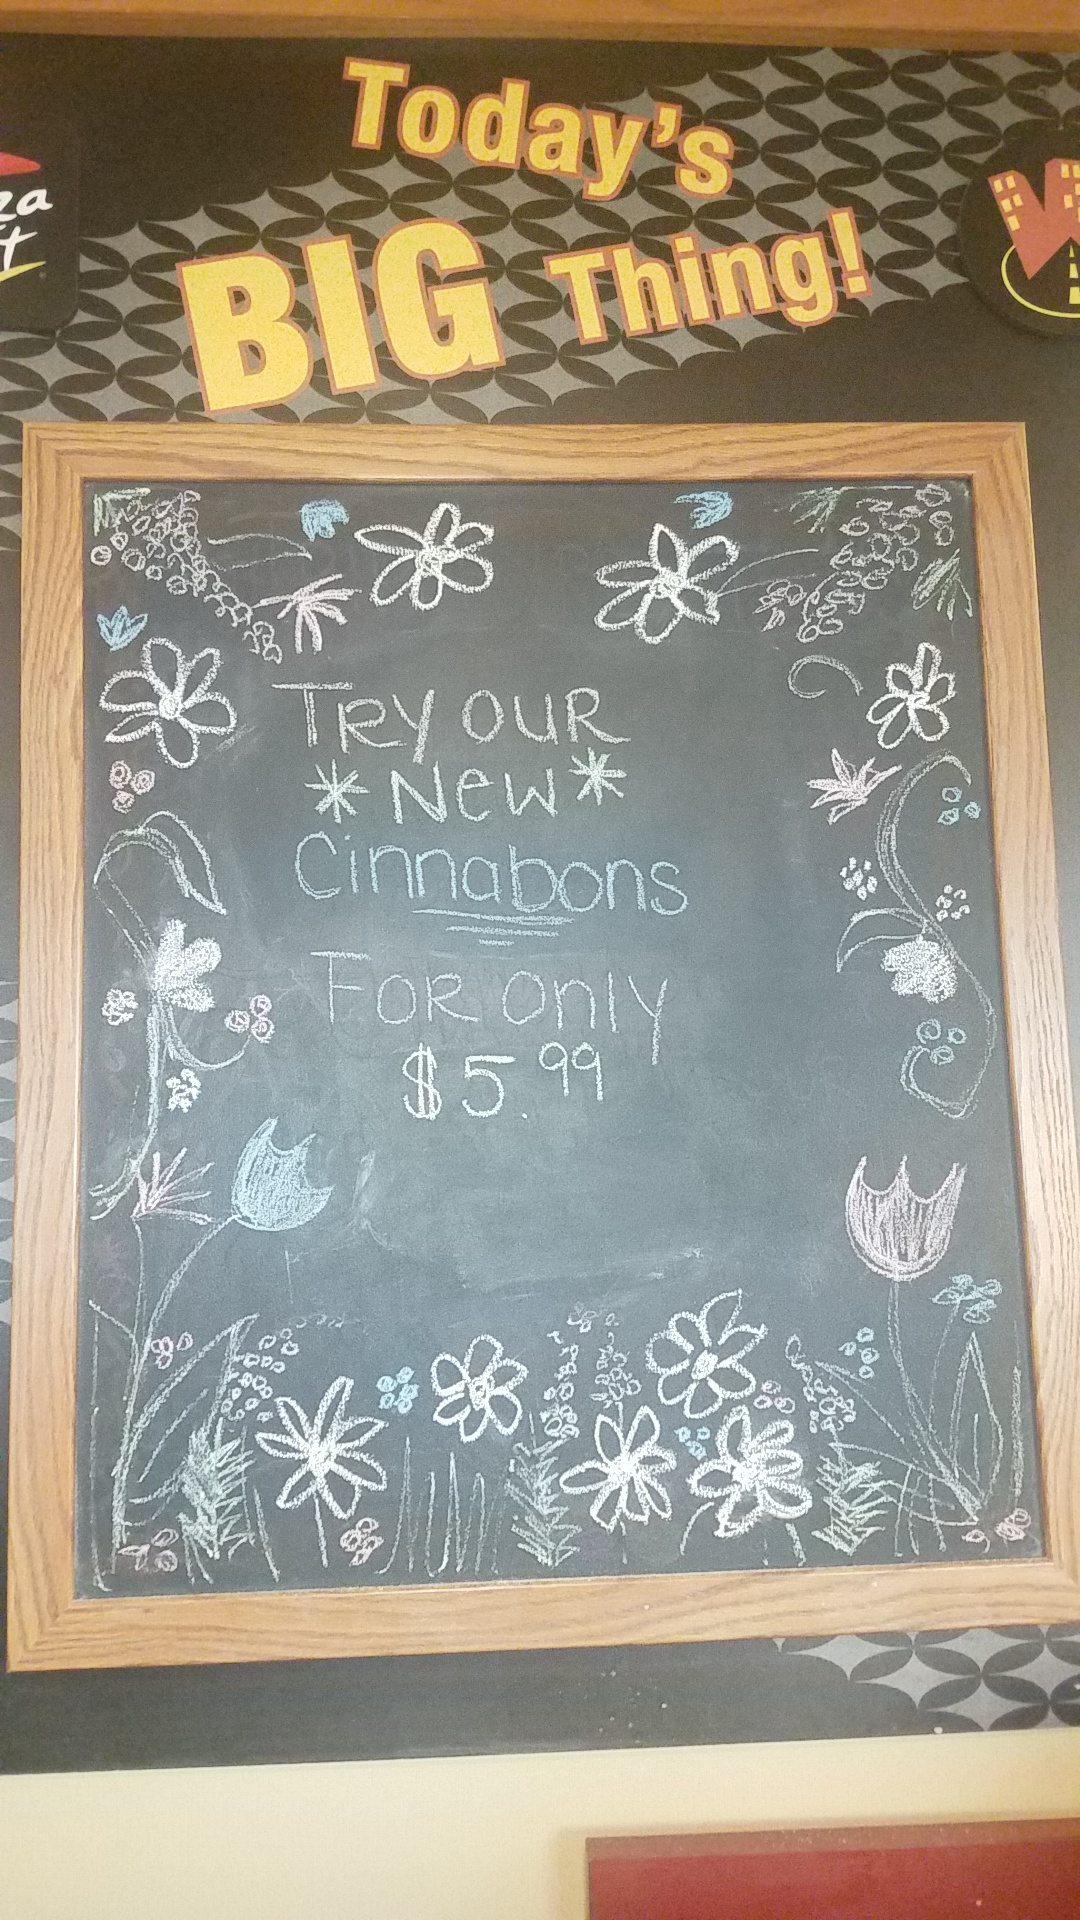 Today's
BIG Thing!
za
t
W
TRY OUR
*New*
Cinnabons
FOR Only
$5.99